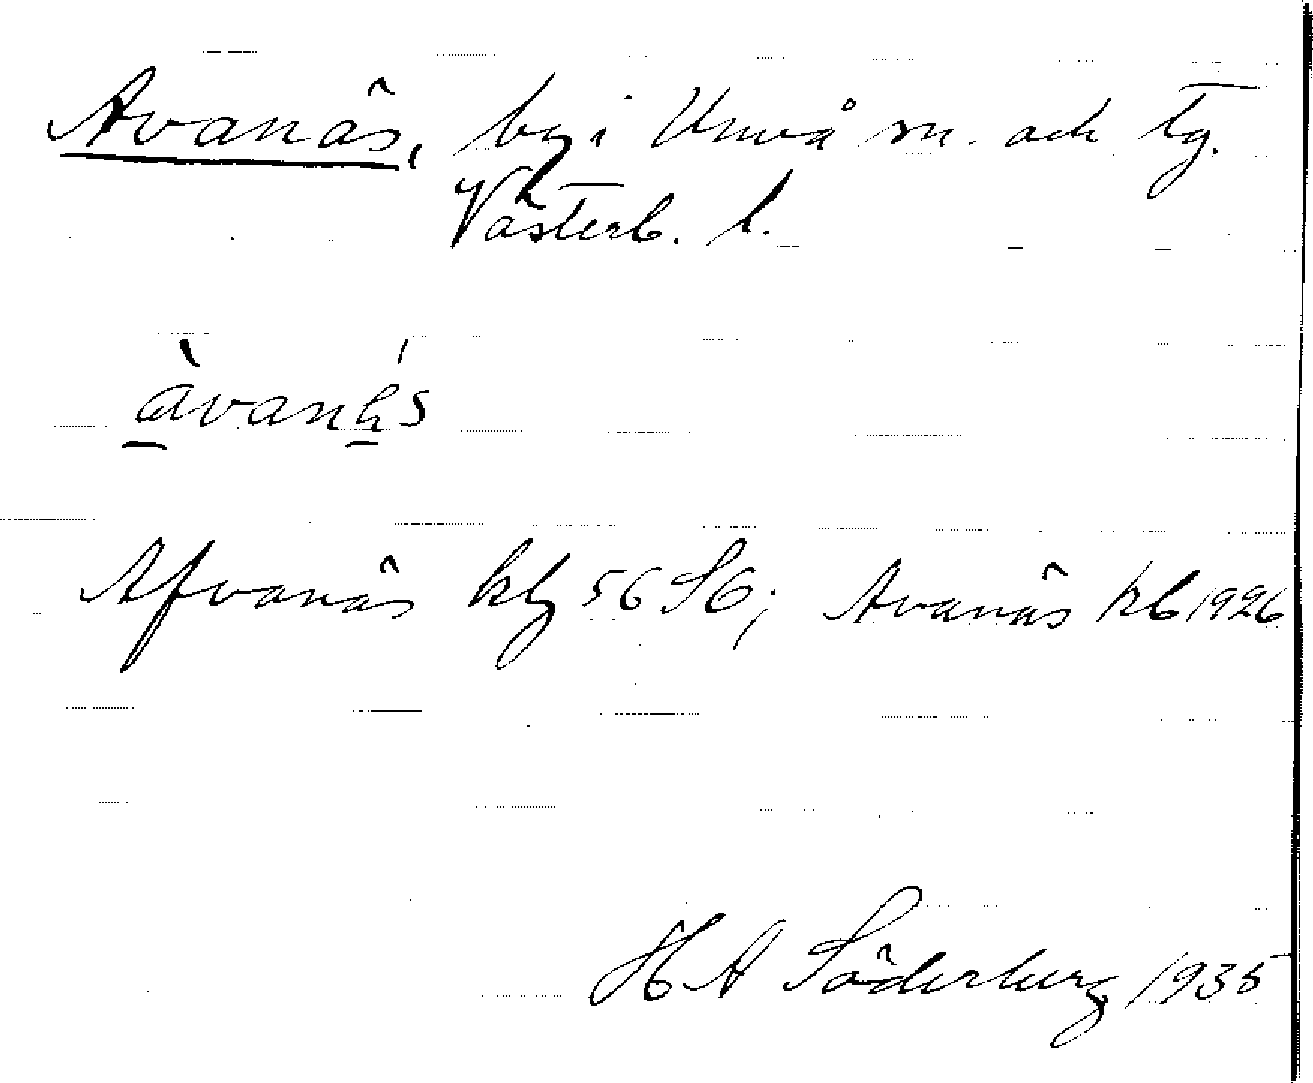 Avanäs, by i Umeå sn. och tg.
Västerb. l.
àvanás
Afvanäs klg 56 S6; Avanäs kb 1926
H A Söderberg 1935